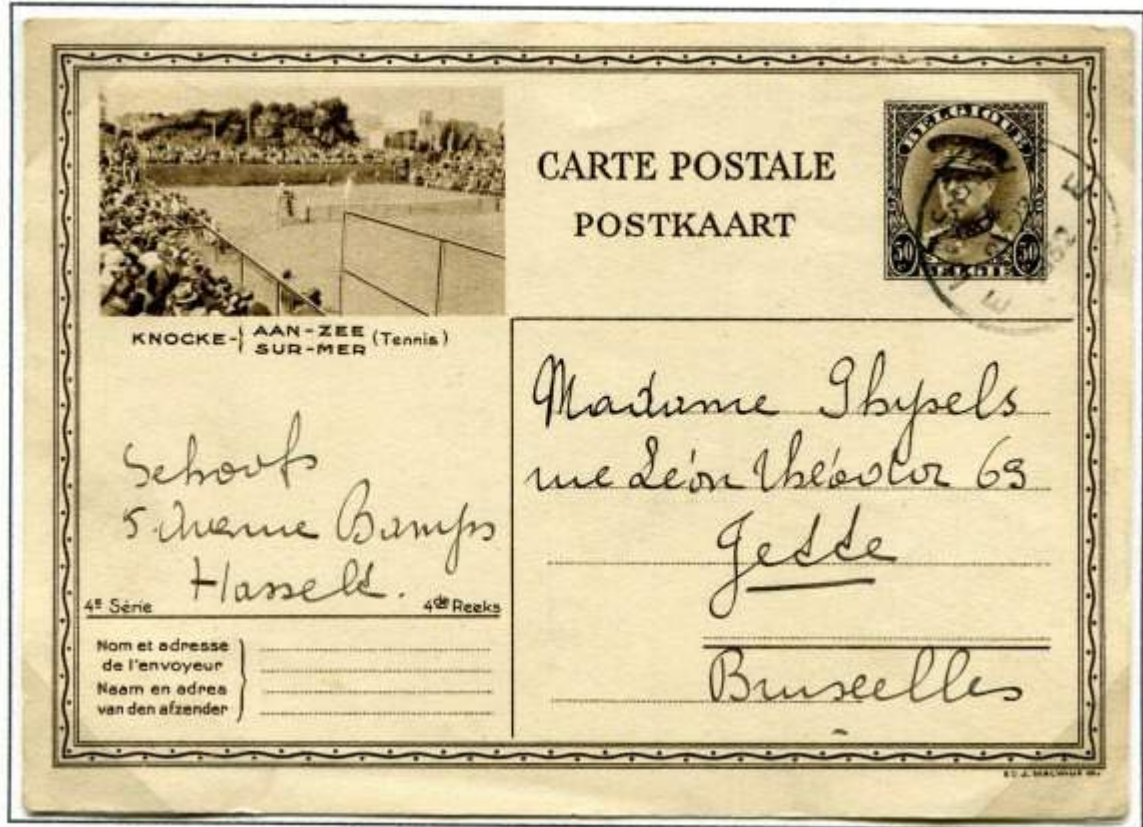 CARTE POSTALE
POSTKAART
BELGIQUE
50 50
BELGIE
KNOCKE- AAN-ZEE (Tennis)
SUR-MER
Schoofs
5 Avenue Bamps
Hasselt.
4e Série 4de Reeks
Nom et adresse
de l'envoyeur
Naam en adres
van den afzender
Madame Ghysels
rue Léon Théodor 69
Jette
Bruxelles